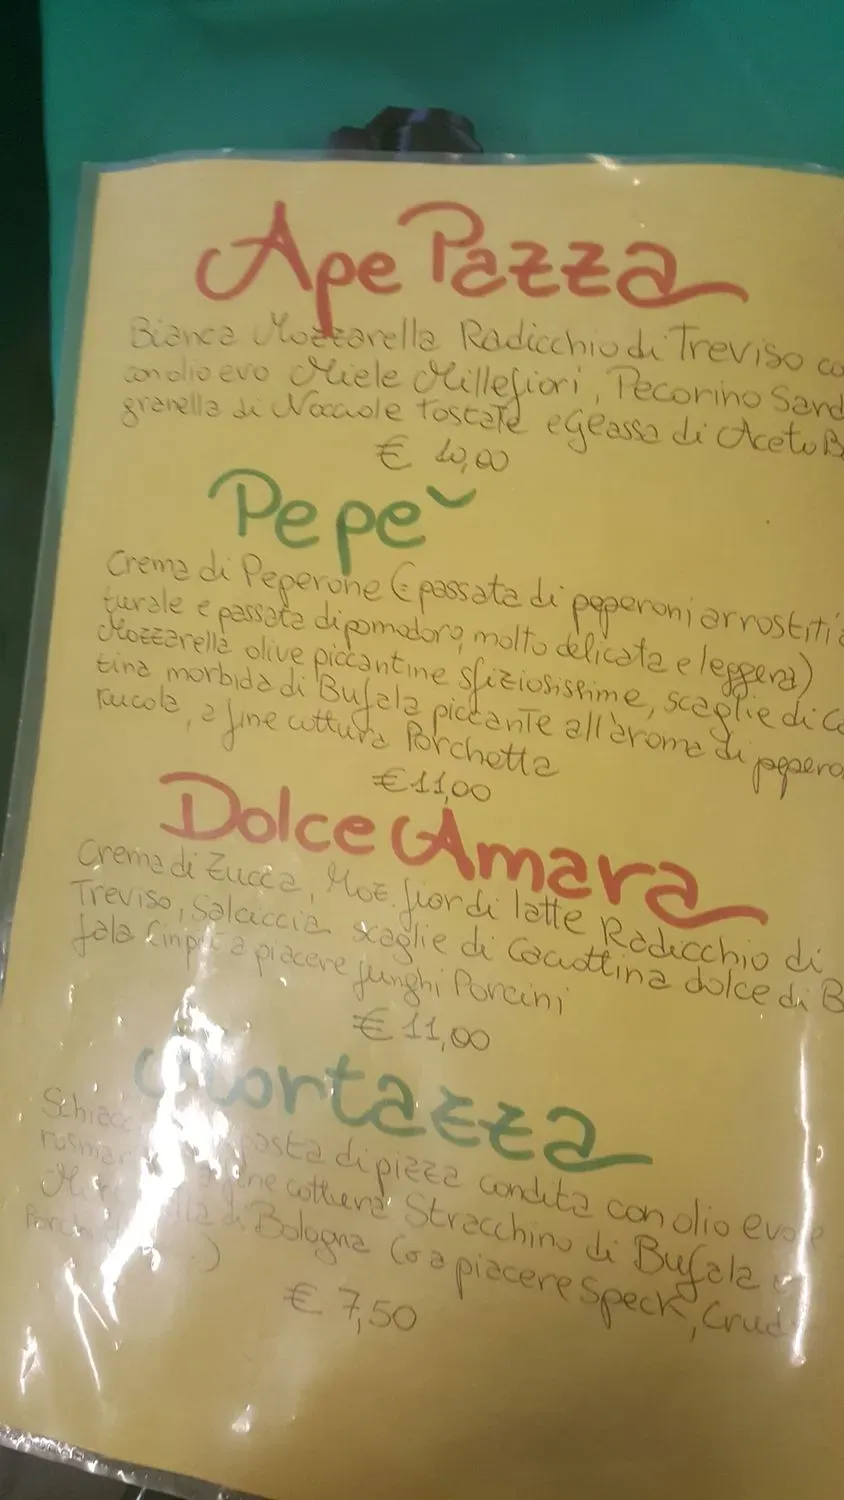 Ape Pazza
Bianca Mozzarella Radicchio di Treviso co
con olio evo Miele Millefiori, Pecorino Sard
granella di Nocciole tostate e Glassa di Aceto B
€ 10,00
Pepè
Crema di Peperone (passata di peperoni arrostiti
turale e passata di pomodoro, molto delicata e leggera)
Mozzarella olive piccantine sfiziosissime, scaglie di C
tina morbida di Bufala piccante all'aroma di pepero
rucola, a fine cottura Porchetta
€ 11,00
Dolce Amara
Crema di Zucca, Moz. fior di latte Radicchio di
Treviso, Salsiccia scaglie di Caciottina dolce di B
fala a piacere funghi Porcini
€ 11,00
Mortazza
Schiacc pasta di pizza condita con olio evo e
rosmar fine cottura Stracchino di Bufala
di Bologna (o a piacere Speck, Crud
Porch )
€ 7,50